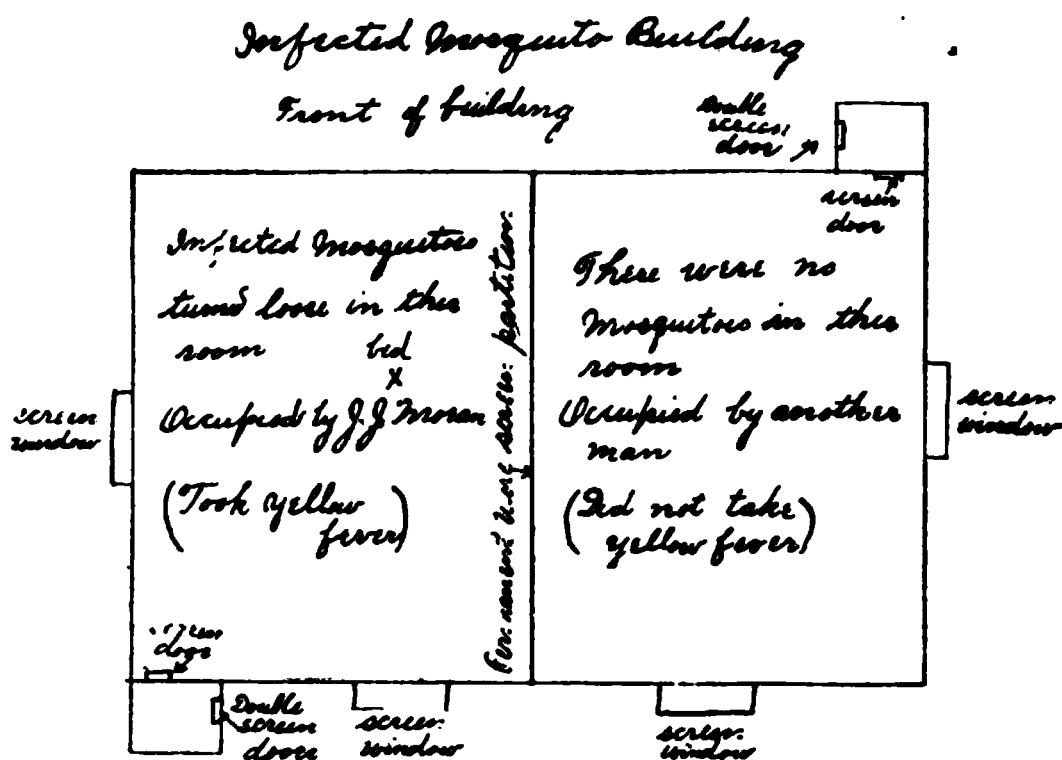 Infected Mosquito Building
Front of building
Double
screen
door
screen
door
Infected Mosquitoes
turned loose in this
room
bed
X
Occupied by J.J. Moran
(Took yellow
fever)
Permanent wire screen partition
There were no
Mosquitoes in this
room
Occupied by another
man
(Did not take
yellow fever)
screen
window
screen
window
screen
door
Double
screen
doors
screen
window
screen
window